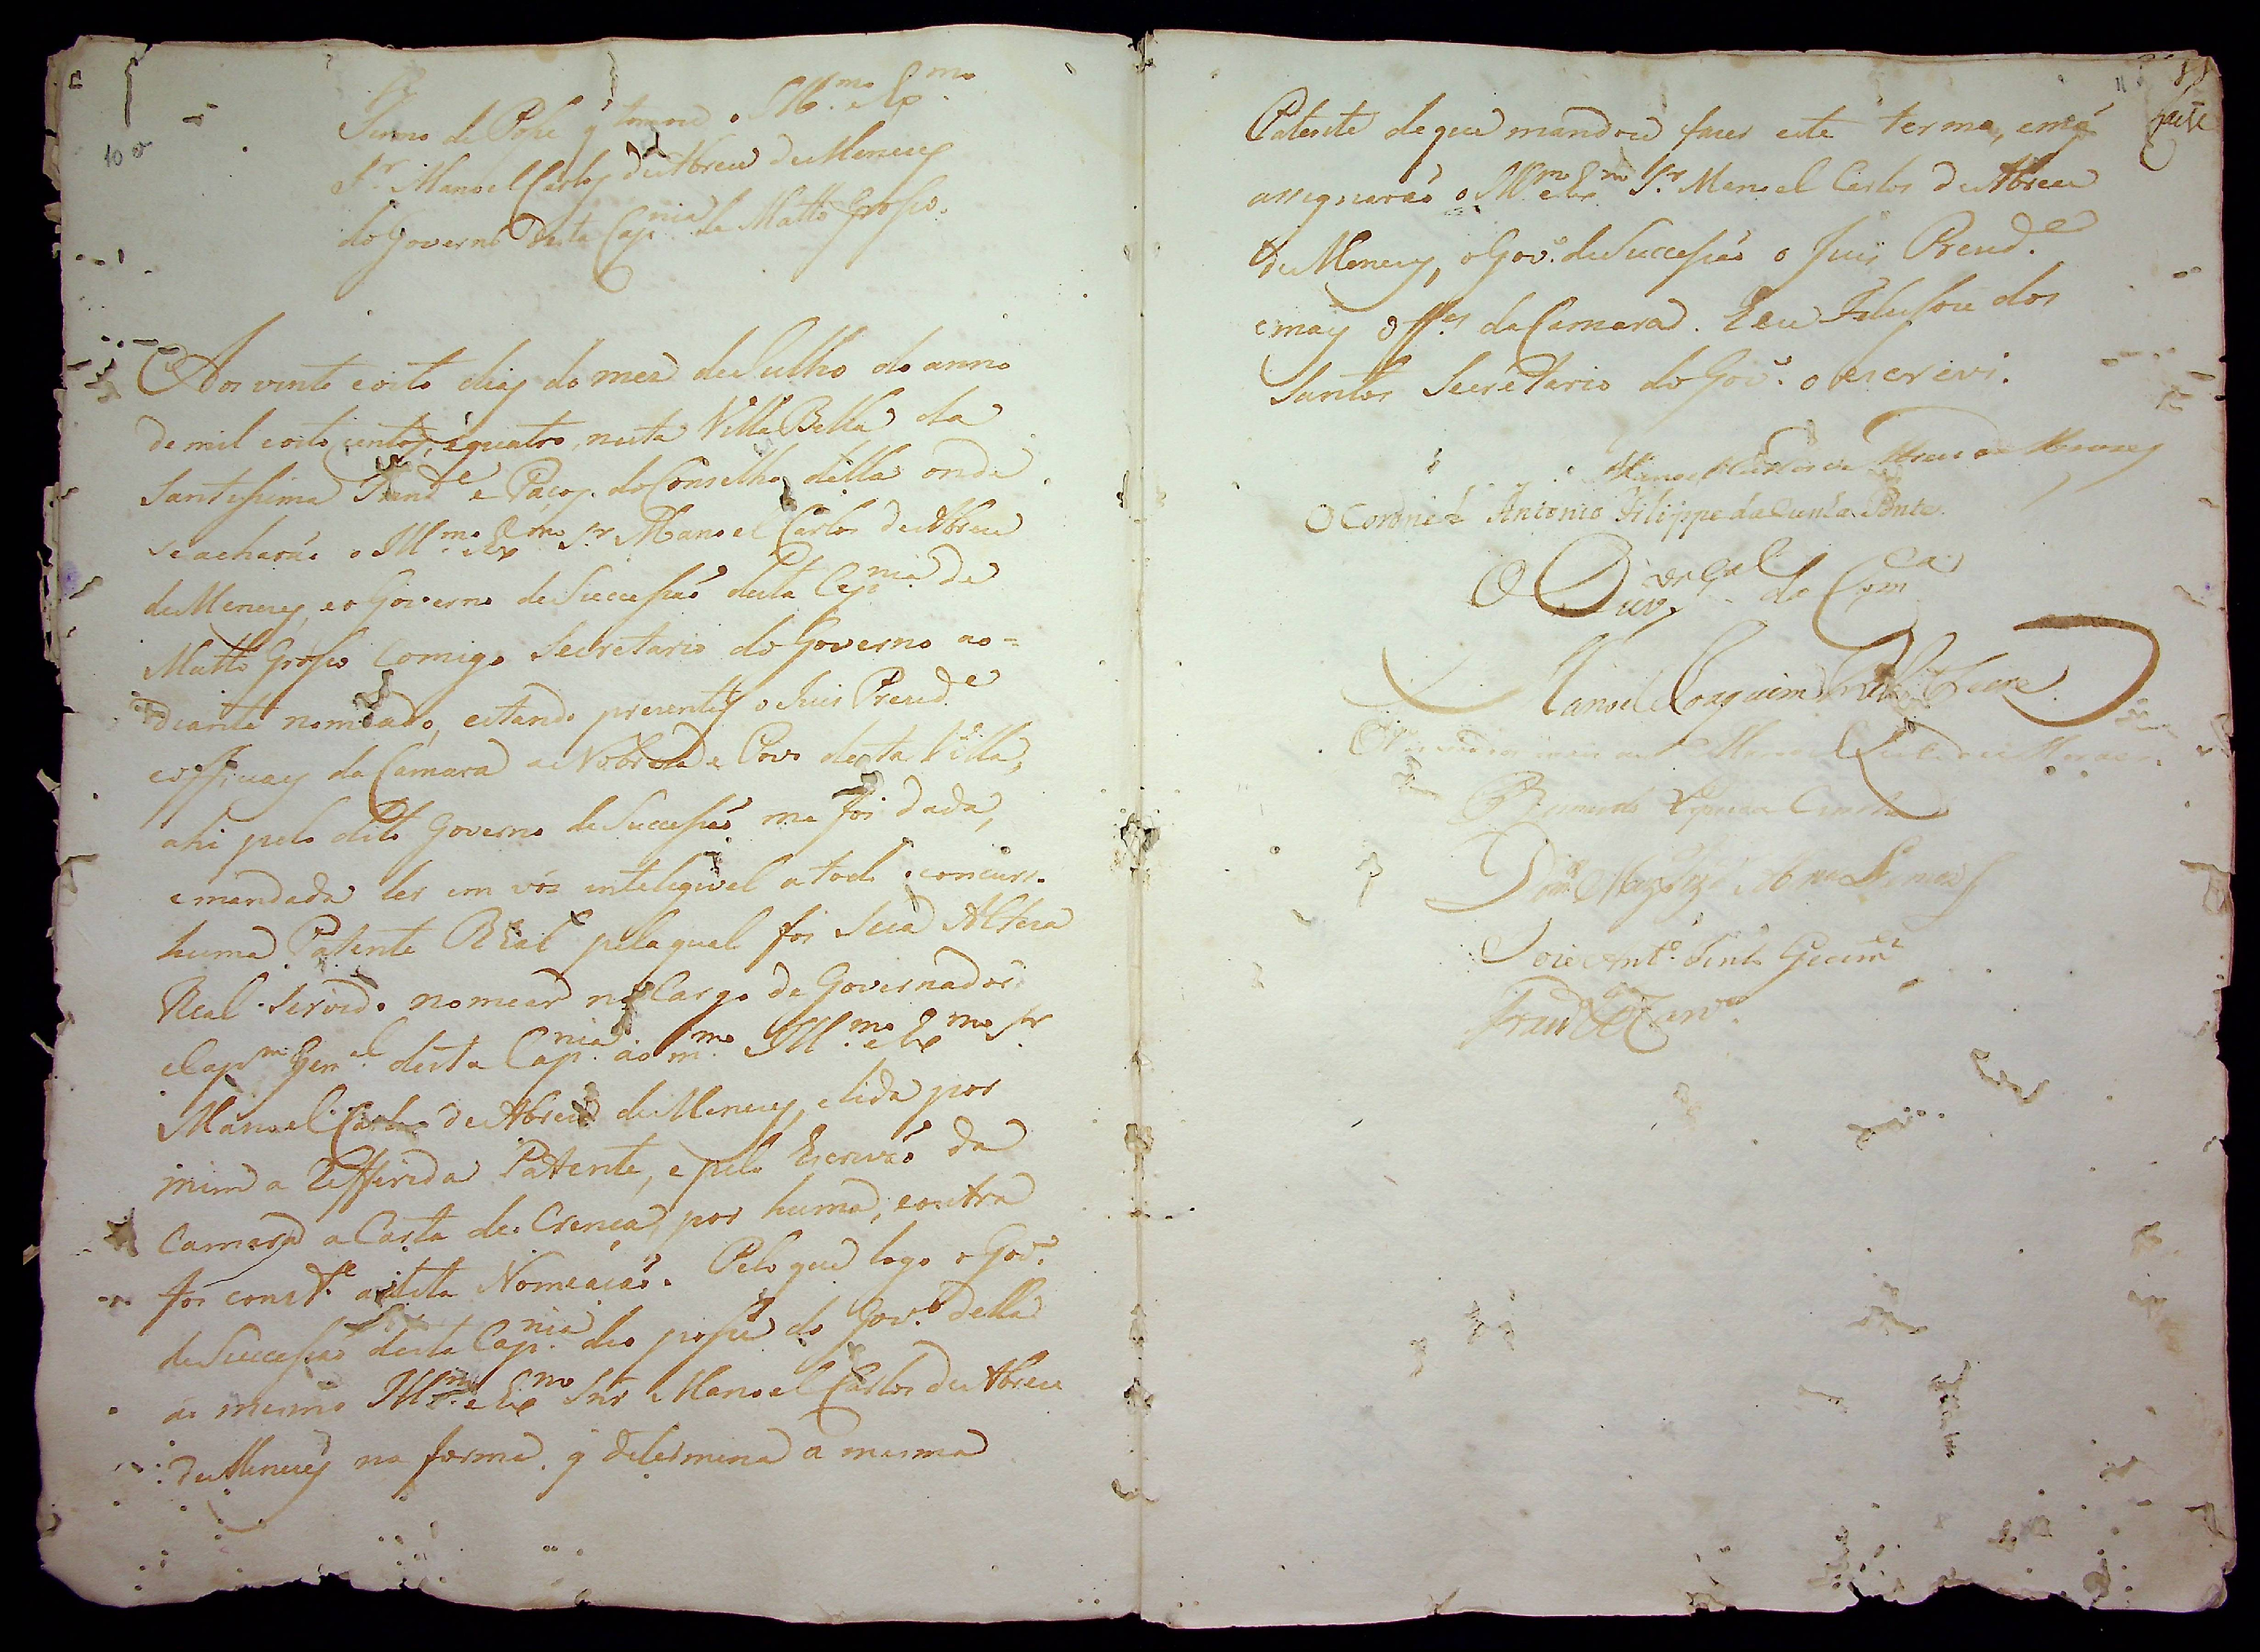 10v
Termo de Posse q̃ tomou o Ill.mo e Ex.mo
S.r Manoel Carlos de Abreu de Menezes
do Governo desta Cap.nia de Matto Grosso.
Aos vinte e oito dias do mez de Julho do anno
de mil e oito centos, e quatro, nesta Villa Bella da
Santissima Trind.e e Paços do Conselho della onde
se acharão o Ill.mo e Ex.mo S.r Manoel Carlos de Abreu
de Menezes, e o Governo de Successão desta Cap.nia de
Matto Grosso Comigo Secretario do Governo ao=
diante nomeado, estando presentes o Juis Prezid.e
e officiaes da Camara a Nobreza e Povo desta Villa,
ahi pelo dito Governo de Successão me foi dada,
e mandada ler em vós entelegivel a todo o concurs.
huma Patente Real pela qual foi Sua Alteza
Real servido nomear no Cargo de Governador
e Cap.m Gen.al desta Cap.nia ao m.mo Ill.mo e Ex.mo Sr
Manoel Carlos de Abreu de Menezes, e lida por
mim a Refferida Patente, e pelo Escrivão da
Camara a Carta de Crença, por huma, e outra
foi const.e a dita Nomeação. Pelo que logo o Gov.o
de Successão desta Cap.nia deo posse do Gov.o della
ao mesmo Ill.mo e Ex.mo Snr Manoel Carlos de Abreu
de Menezes na forma q̃ determina a mesma
11
Patente de que mandou fazer este termo, em q̃
assignarão o Ill.mo e Ex.mo S.r Manoel Carlos de Abreu
de Menezes, o Gov.o de Successão o Juis Prezid.e
e mais Off.es da Camara. E eu dos
Santos Secretario do Gov.o o escrevi.
Manoel Carlos de Abreu de Menezes
O Coronel Antonio Filippe da Cunha Ponte
O Ouv.or Geral da Com.ca
Manoel Joaquim Freire
Manoel de Moraes
Bernardo Cunha
José Ant.o Pinto